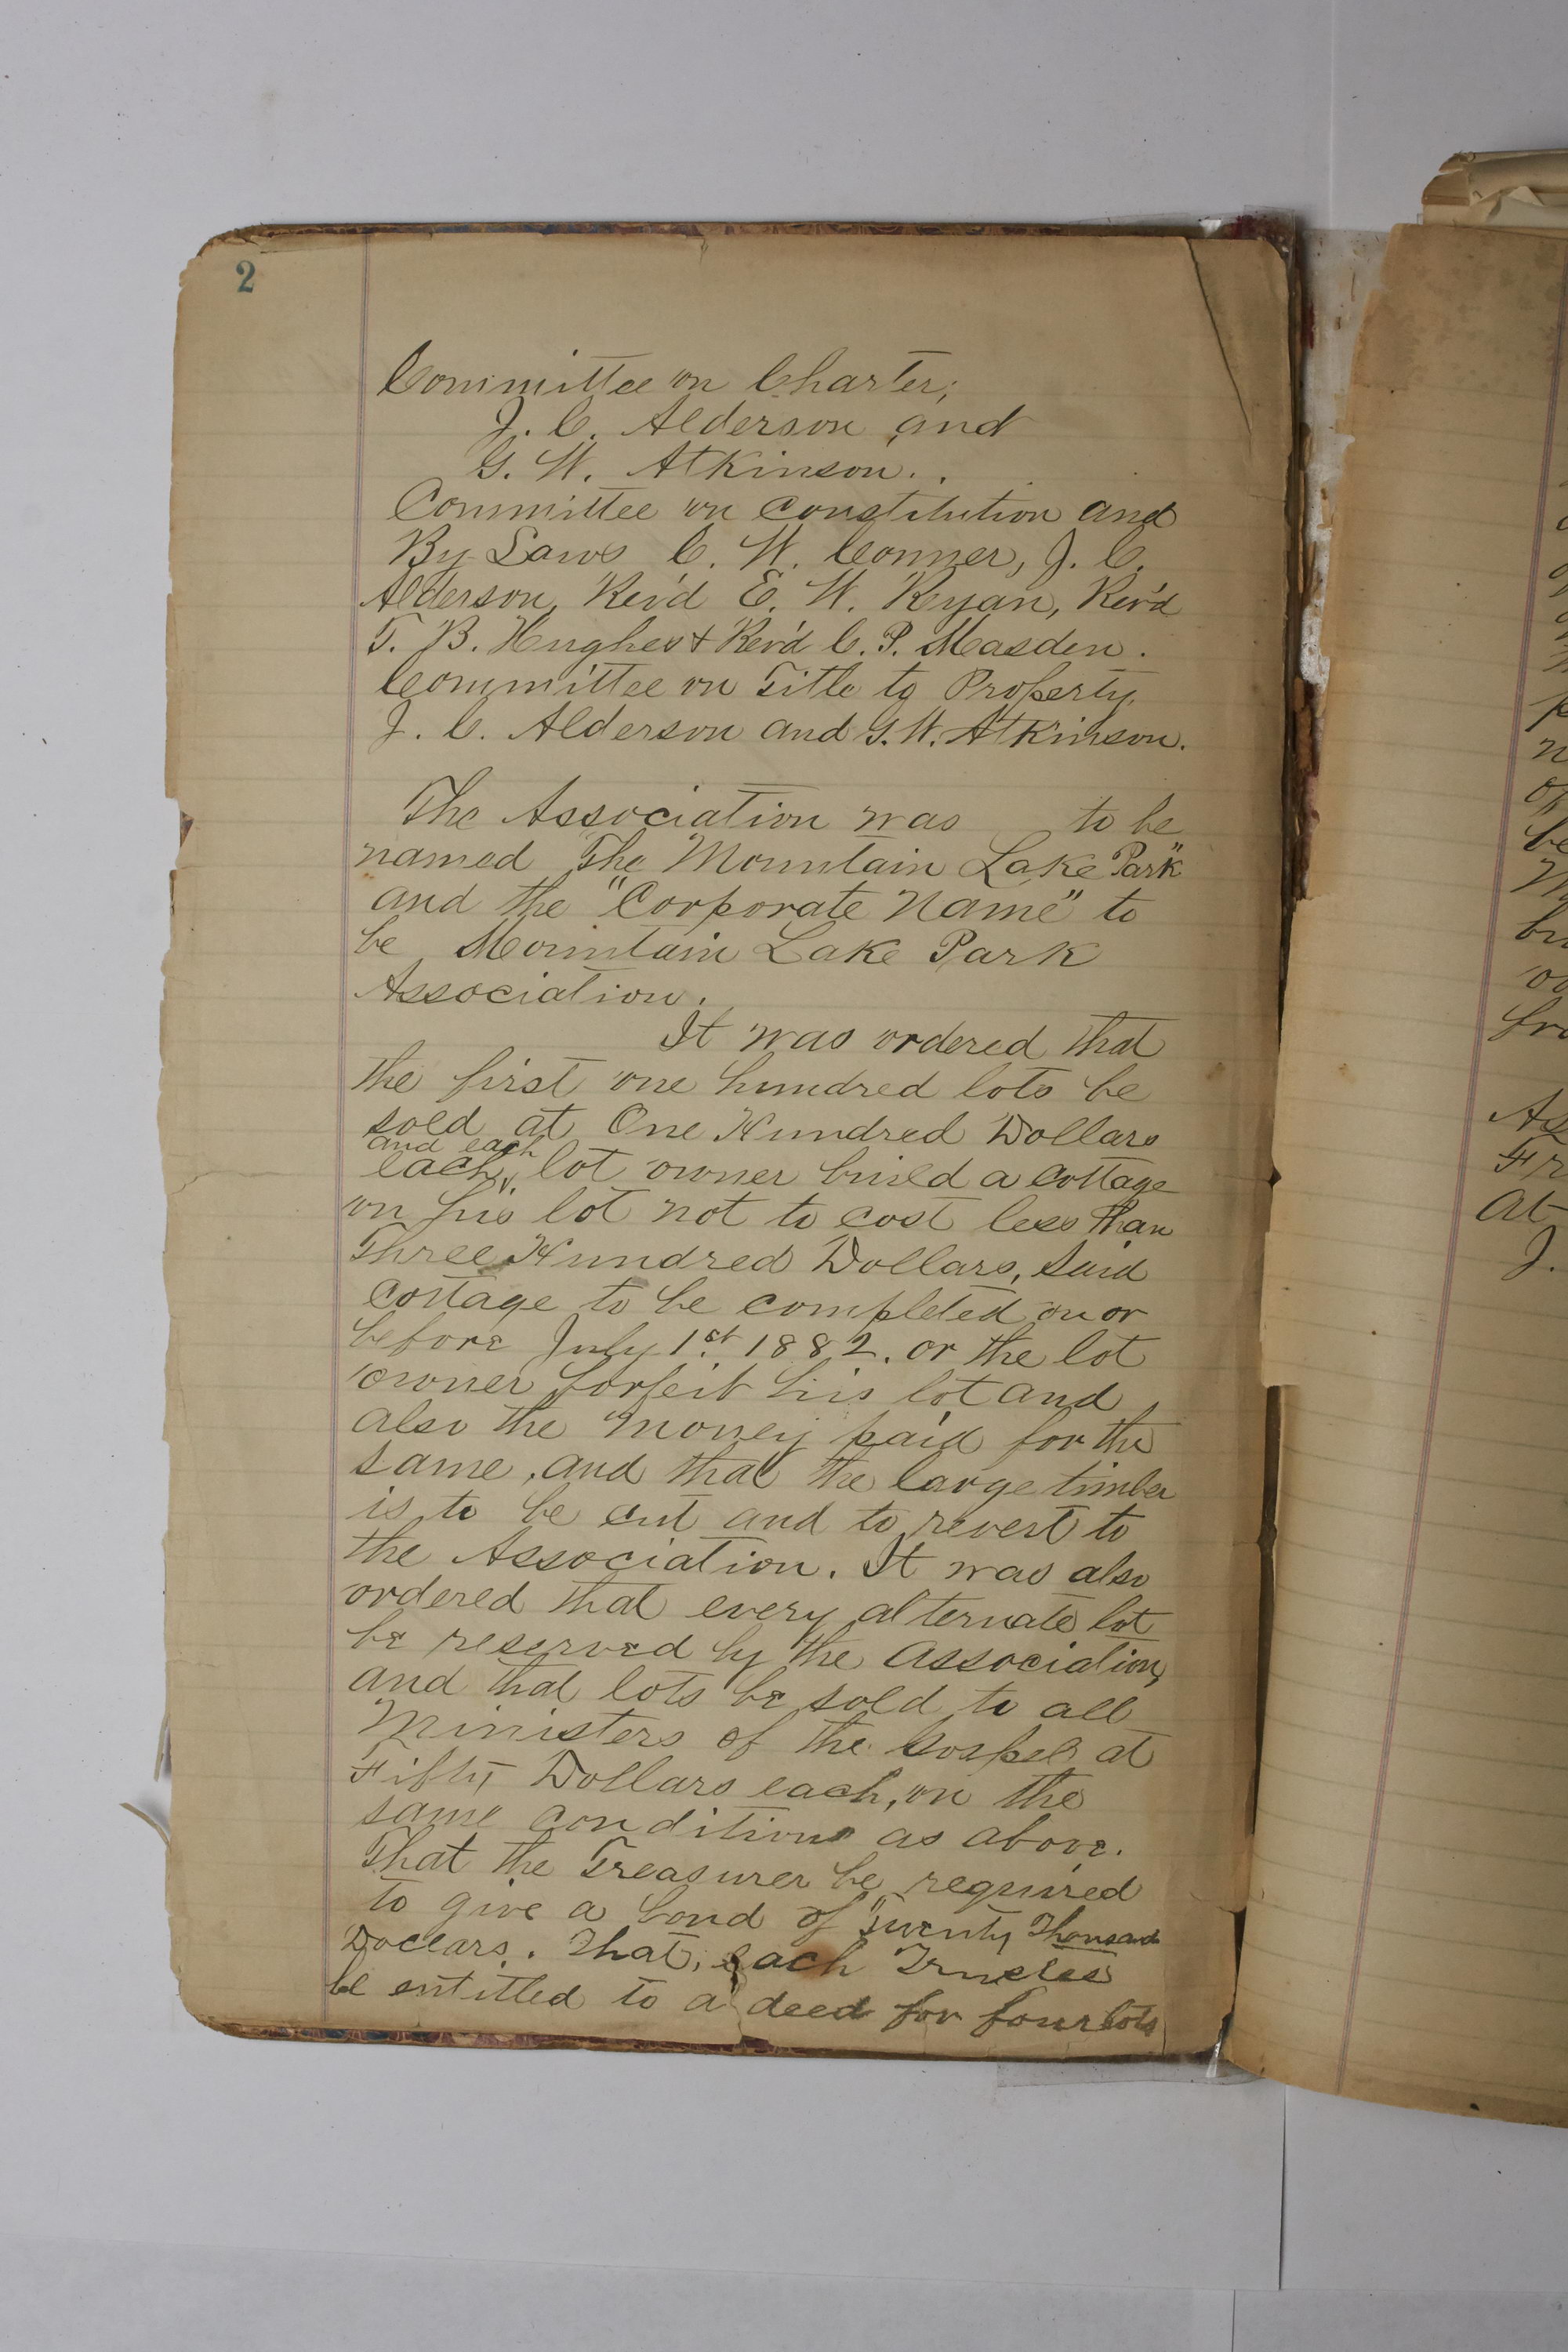 2
Committee on Charter;
J. C. Alderson and
G. W. Atkinson.
Committee on Constitution and
By Laws C. W. Conner, J. C.
Alderson, Rev'd E. W. Ryan, Rev'd
T. B. Hughes & Rev'd C. P. Masden.
Committee on Title to Property,
J. C. Alderson and G. W. Atkinson.
The Association was to be
named The Mountain Lake Park"
and the "Corporate Name" to
be Mountain Lake Park
Association.
It was ordered that
the first one hundred lots be
sold at One Hundred Dollars
and each
each, lot owner build a cottage
on his lot not to cost less than
Three Hundred Dollars, said
cottage to be completed on or
before July 1st 1882. or the lot
owner forfeit his lot and
also the money paid for the
same, and that the large timber
is to be cut and to revert to
the Association. It was also
ordered that every alternate lot
be reserved by the Association,
and that lots be sold to all
Ministers of the Gospel at
Fifty Dollars each, on the
same conditions as above.
That the Treasurer be required
to give a bond of Twenty Thousand
Dollars. That, each Trustee
be entitled to a deed for four lots